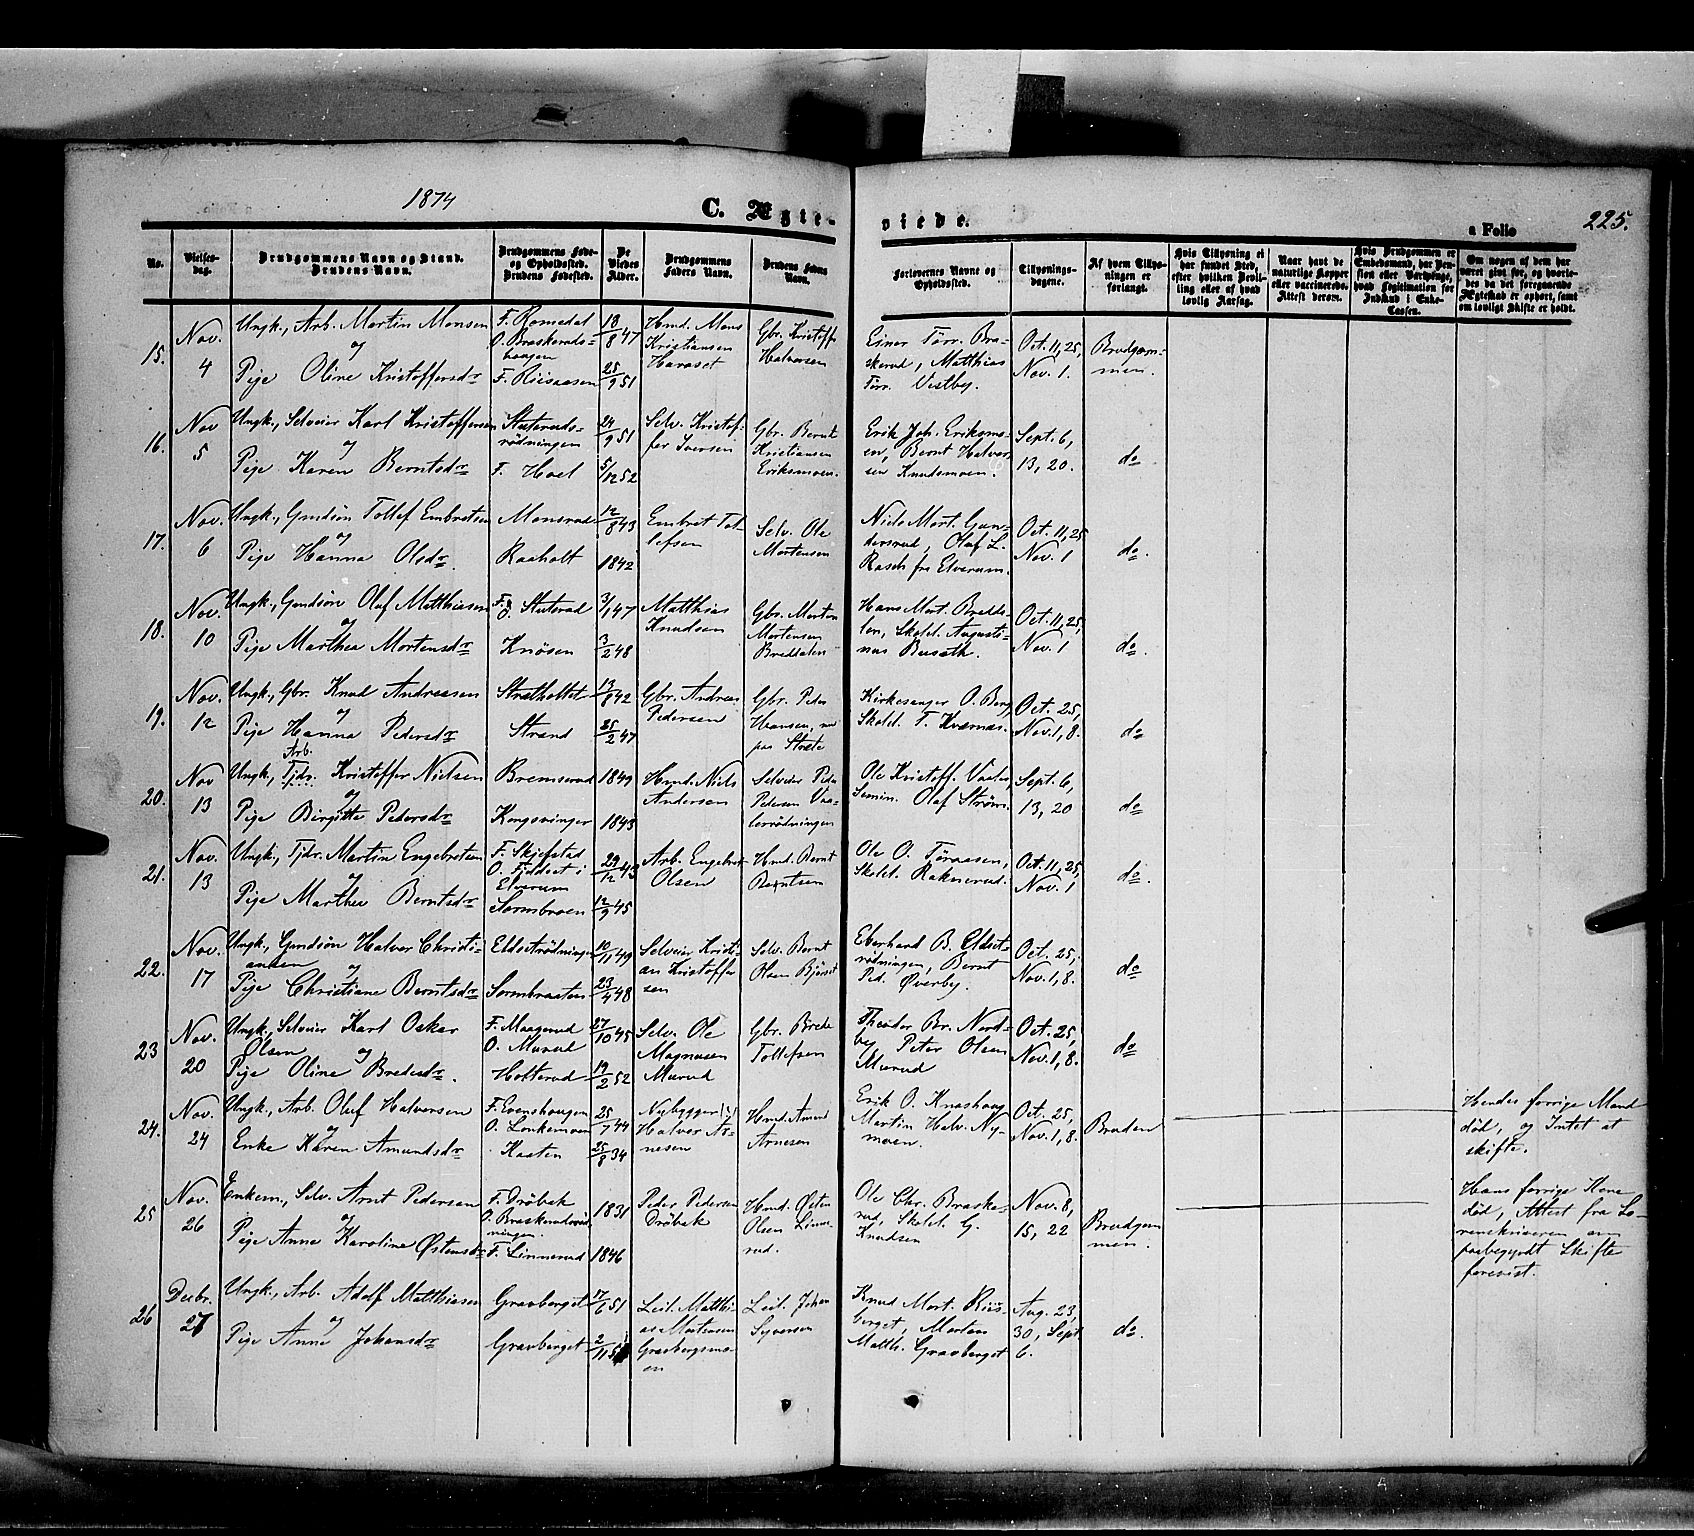 1874
C. Ægte-
viede.
a Folio
225.
No.
Vielses-
dag.
Brudgommens Navn og Stand.
Brudens Navn.
Brudgommens Føde-
og Opholdssted.
Brudens Fødested.
De
Viedes
Alder.
Brudgommens
Faders Navn.
Brudens Faders
Navn.
Forlovernes Navne og
Opholdssted.
Tillysnings-
dagene.
Af hvem Tillys-
ningen er
forlangt.
Hvis Tillysning ei
har fundet Sted,
efter hvilken Bevil-
ling eller af hvad
lovlig Aarsag.
Naar havt de
naturlige Kopper
eller vaccinerede.
Attest derom.
Hvis Brudgommen er
Embedsmand, har Pen-
sion eller Vartpenge,
hvad Legitimation for
Indskud i Enke-
Cassen.
Om nogen af dem har
været gift før, og hvorle-
des da det foregaaende
Ægteskab er ophørt, samt
om lovligt Skifte er holdt.
15.
Nov.
4
Ungk., Arb. Martin Monsen
og
Pige Oline Kristoffersdr
F. Romedal
O. Braskeruds-
haugen
F. Riisaasen
18/8 47
25/9 51
Hmd. Mons
Kristiansen
Haraset
Gbr. Kristoffer
Halvorsen
Einar Torr. Bra-
skerud, Matthias
Torr. Vestby.
Oct. 11, 25,
Nov. 1.
Brudgom-
men.
16.
Nov
5
Ungk., Selveier Karl Kristoffersen
og
Pige Karen Berntsdr
Stuteruds-
rødningen
F. Hoel
24/9 51
5/12 52
Selv. Kristof-
fer Iversen
Gbr. Bernt
Kristiansen
Eriksmoen.
Erik Joh. Eriksmo-
en, Bernt Halvor-
sen Knudsmoen.
Sept. 6,
13, 20.
do
17.
Nov.
6
Ungk., Gmdsøn Tollef Embretsen
og
Pige Hanna Olsdr.
Monsrud
Raaholt
12/8 43
1842
Embret Tol-
lefsen
Selv. Ole
Mortensen
Niels Mort. Gun-
dersrud, Olaf L.
Rasch fra Elverum.
Oct. 11, 25
Nov. 1
do.
18.
Nov.
10
Ungk., Gmdsøn Oluf Matthiesen
og
Pige Marthea Mortensdr
F. &
O. Stuterud
Knøsen
3/1 47
3/2 48
Matthias
Knudsen
Gbr. Morten
Mortensen
Breddalen
Hans Mort. Bredda-
len, Skolel. Augusti-
nus Buseth.
Oct. 11, 25,
Nov. 1
do.
19.
Nov.
12
Ungk., Gbr. Knud Andreasen
og
Pige Hanna Pedersdr
Strætkottet
Strand
13/8 42
25/2 47
Gbr. Andreas
Pedersen
Gbr. Peder
Hansen, nu
paa Stræte
Kirkesanger O. Berg,
Skolel. T. Kværnæs.
Oct. 25,
Nov. 1, 8.
do
20.
Nov
13
Arb.
Ungk., Tjdr. Kristoffer Nielsen
og
Pige Birgitte Pedersdr
Bremserud
Kongsvinger
1849
1843
Hmd. Niels
Andersen
Selveier Peder
Pedersen Vaa-
lerrødningen
Ole Kristoff. Vaaler,
Semin. Olaf Strøm.
Sept. 6,
13, 20
do
21.
Nov
13
Ungk., Tjdr. Martin Engebretsen
og
Pige Marthea Berntsdr
F. Skjefstad
O. Fjeldset i
Elverum
Sormbroen
29/12 43
12/9 45
Arb. Engebret
Olsen
Hmd. Bernt
Berntsen
Ole O. Toraasen,
Skolel. Raknerud.
Oct. 11, 25,
Nov. 1
do.
22.
Nov.
17
Ungk., Gmdsøn Halvor Christi-
ansen
og
Pige Christiane Berntsdr
Eldsetrødningen
Sormbraaten
10/11 49
23/4 48
Selveier Kristi-
an Kristoffer
sen
Selv. Bernt
Olsen Bjørset
Eberhard B. Eldset-
rødningen, Bernt
Ped. Øverby.
Oct. 25,
Nov. 1, 8.
do
23
Nov.
20
Ungk., Selveier Karl Oskar
Olsen
og
Pige Oline Bredesdr.
F. Maagerud
O. Murud
Hotterud
27/10 45
19/2 52
Selv. Ole
Magnusen
Murud
Gbr. Brede
Tollefsen
Theodor Br. Nord-
by, Peter Olsen
Murud
Oct. 25,
Nov. 1, 8.
do
24.
Nov.
24
Ungk., Arb. Oluf Halvorsen
og
Enke Karen Amundsdr
F. Evenshaugen
O. Lonkemoen
Kaaten
25/7 44
25/8 34
Nybygger
Halvor Ar-
nesen
Hmd. Amund
Arnesen
Erik O. Knashaug
Martin Halv. Ny-
moen.
Oct. 25,
Nov. 1, 8.
Bruden
Hendes forrige Mand
død, og Intet at
skifte.
25
Nov.
26
Enkem., Selv. Arnt Pedersen
og
Pige Anne Karoline Østensdr
F. Drøbak
O. Braskerudrød-
ningen.
F. Linnerud
1831
1846
Peder Pedersen
Drøbak
Hmd. Østen
Olsen Linne-
rud.
Ole Chr. Braske-
rud, Skolel. G.
Knudsen
Nov. 8,
15, 22
Brudgom
men.
Hans forrige Kone
død, Attest fra So-
renskriveren om
paabegyndt Skifte
forevist.
26
Decbr.
27
Ungk., Arb. Adolf Matthiasen
og
Pige Anne Johansdr
Gravberget
Gravberget
17/6 51
2/11 5
Leil. Matthi-
as Mortensen
Gravbergsmo-
en
Leil. Johan
Syversen
Knud Mort. Riis-
berget, Morten
Matth. Gravberget
Aug. 23,
30, Sept.
6.
do.